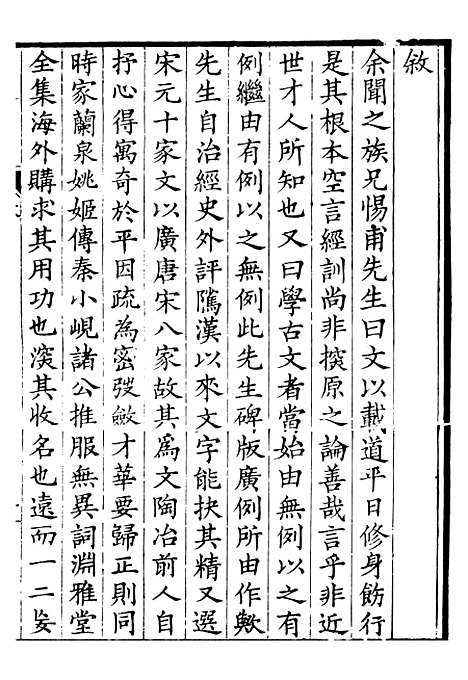 敘
余聞之族兄惕甫先生曰文以載道平日修身飭行
是其根本空言經訓尚非揬原之論善哉言乎非近
世才人所知也又曰學古文者當始由無例以之有
例繼由有例以之無例此先生碑版廣例所由作歟
先生自治經史外評騭漢以來文字能抉其精又選
宋元十家文以廣唐宋八家故其爲文陶冶前人自
抒心得寓奇於平因疏為密弢斂才華要歸正則同
時家蘭泉姚姬傳秦小峴諸公推服無異詞淵雅堂
全集海外購求其用功也深其收名也遠而一二妄